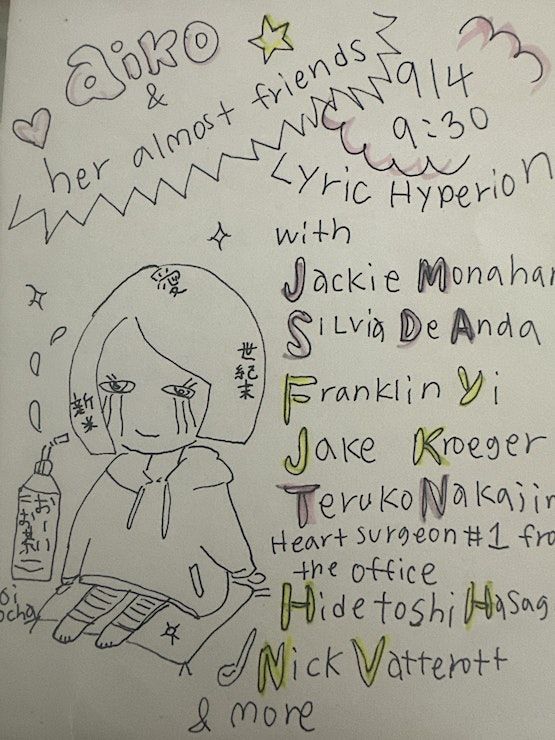 aiko
&
her almost friends
9/4
9:30
Lyric Hyperion
with
Jackie Monahan
Silvia De Anda
Franklin Yi
Jake Kroeger
Teruko Nakajim
Heart surgeon #1 fro
the office
Hidetoshi Hasag
Nick Vatterott
& more
愛
世紀末
新米
おーい
お茶
oi
ocha